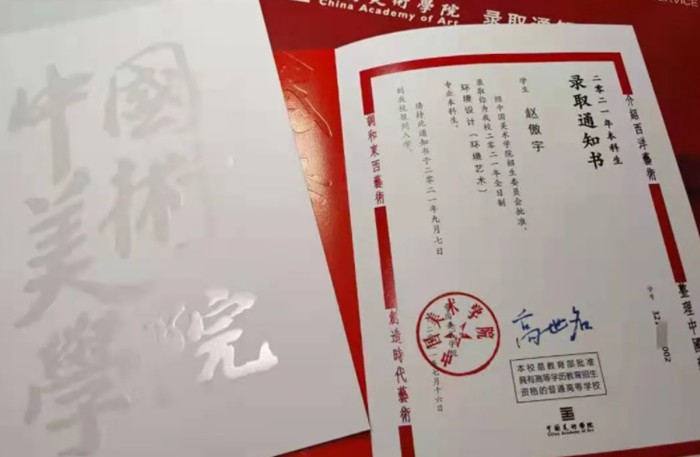 美術學院
China Academy of Art
录取通知
SERVICE
中國美術學院
二〇二一年本科生
录取通知书
学生 赵傲宇
经中国美术学院招生委员会批准，
录取你为我校二〇二一年全日制
环境设计（环境艺术）
专业本科生。
请持此通知书于二〇二一年九月七日
到我校报到入学。
介紹西洋藝術
整理中國
調和東西藝術
創造時代藝術
学号
002
中国美术学院
高世名
本校是教育部批准
具有高等学历教育招生
资格的普通高等学校
中國美術學院
China Academy of Art